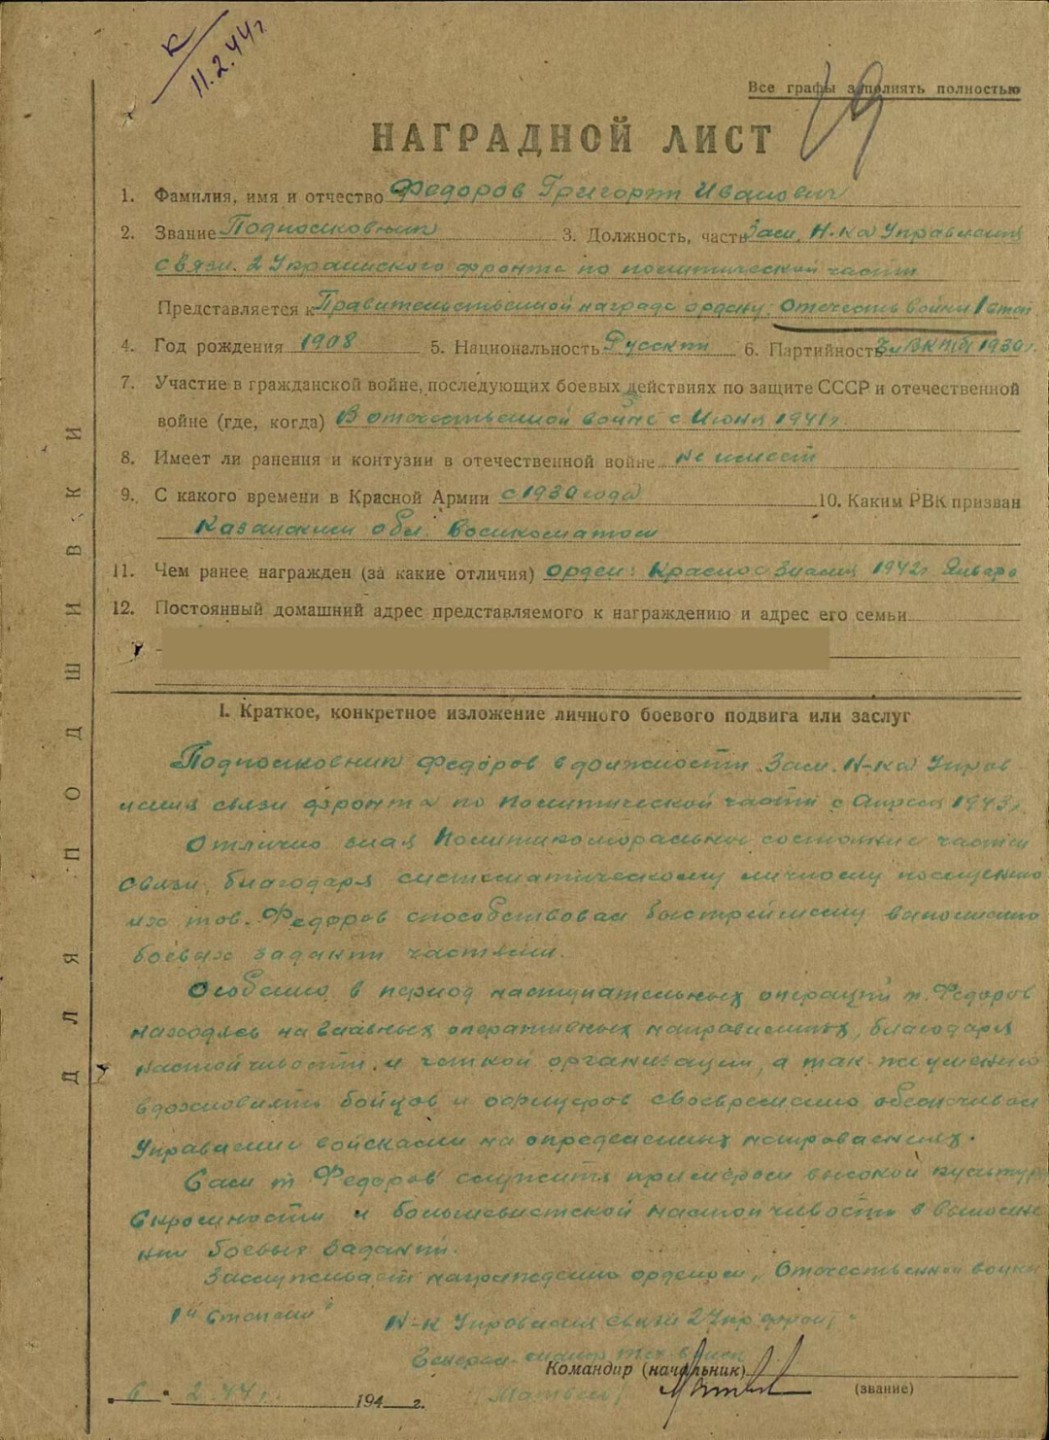 К
11.2.44г
Все графы заполнять полностью
19
НАГРАДНОЙ ЛИСТ
1. Фамилия, имя и отчество Федоров Григорий Иванович
2. Звание Подполковник 3. Должность, часть Зам. Н-ка Управления
связи 2 Украинского фронта по политической части
Представляется к Правительственной награде ордену: Отечеств войны 1 степ
4. Год рождения 1908 5. Национальность Русский 6. Партийность ВКП(б) 1930г.
7. Участие в гражданской войне, последующих боевых действиях по защите СССР и отечественной
войне (где, когда) В отечественной войне с Июня 1941г.
8. Имеет ли ранения и контузии в отечественной войне не имеет
9. С какого времени в Красной Армии с 1930 года 10. Каким РВК призван
Казанским обл. военкоматом
11. Чем ранее награжден (за какие отличия) орден: Красное Знамя 1942г. Январь
12. Постоянный домашний адрес представляемого к награждению и адрес его семьи
ДЛЯ ПОДШИВКИ
I. Краткое, конкретное изложение личного боевого подвига или заслуг
Подполковник Федоров в должности Зам. Н-ка Управ
ления связи фронта по политической части с Апреля 1943г.
Отлично зная Политикоморальное состояние частей
связи, благодаря систематическому личному посещению
их тов. Федоров способствовал быстрейшему выполнению
боевых заданий частями.
Особенно в период наступательных операций т. Федоров
находясь на главных оперативных направлениях, благодаря
настойчивости и четкой организации, а так-же умению
вдохновлять бойцов и офицеров своевременно обеспечивал
Управление войсками на определенных направлениях.
Сам т. Федоров служит примером высокой культуры
скромности и большевистской настойчивости в выполне
нии боевых заданий.
Заслуживает награждению орденом "Отечественной войны
1й степени"
Н-к Управления связи 2 Укр фронта
Генерал-майор тех. войск
Командир (начальник)
(звание)
/Матвеев/
6 " 2.44г. 194 г.